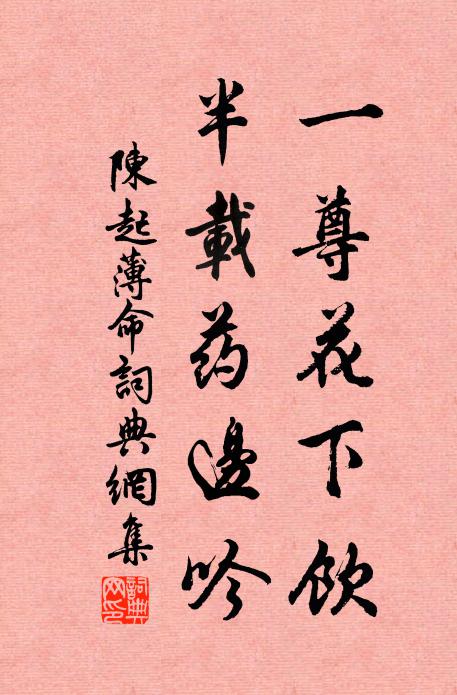 一尊花下飲
半載药邊吟
陳起薄命詞典網集
詞典网印